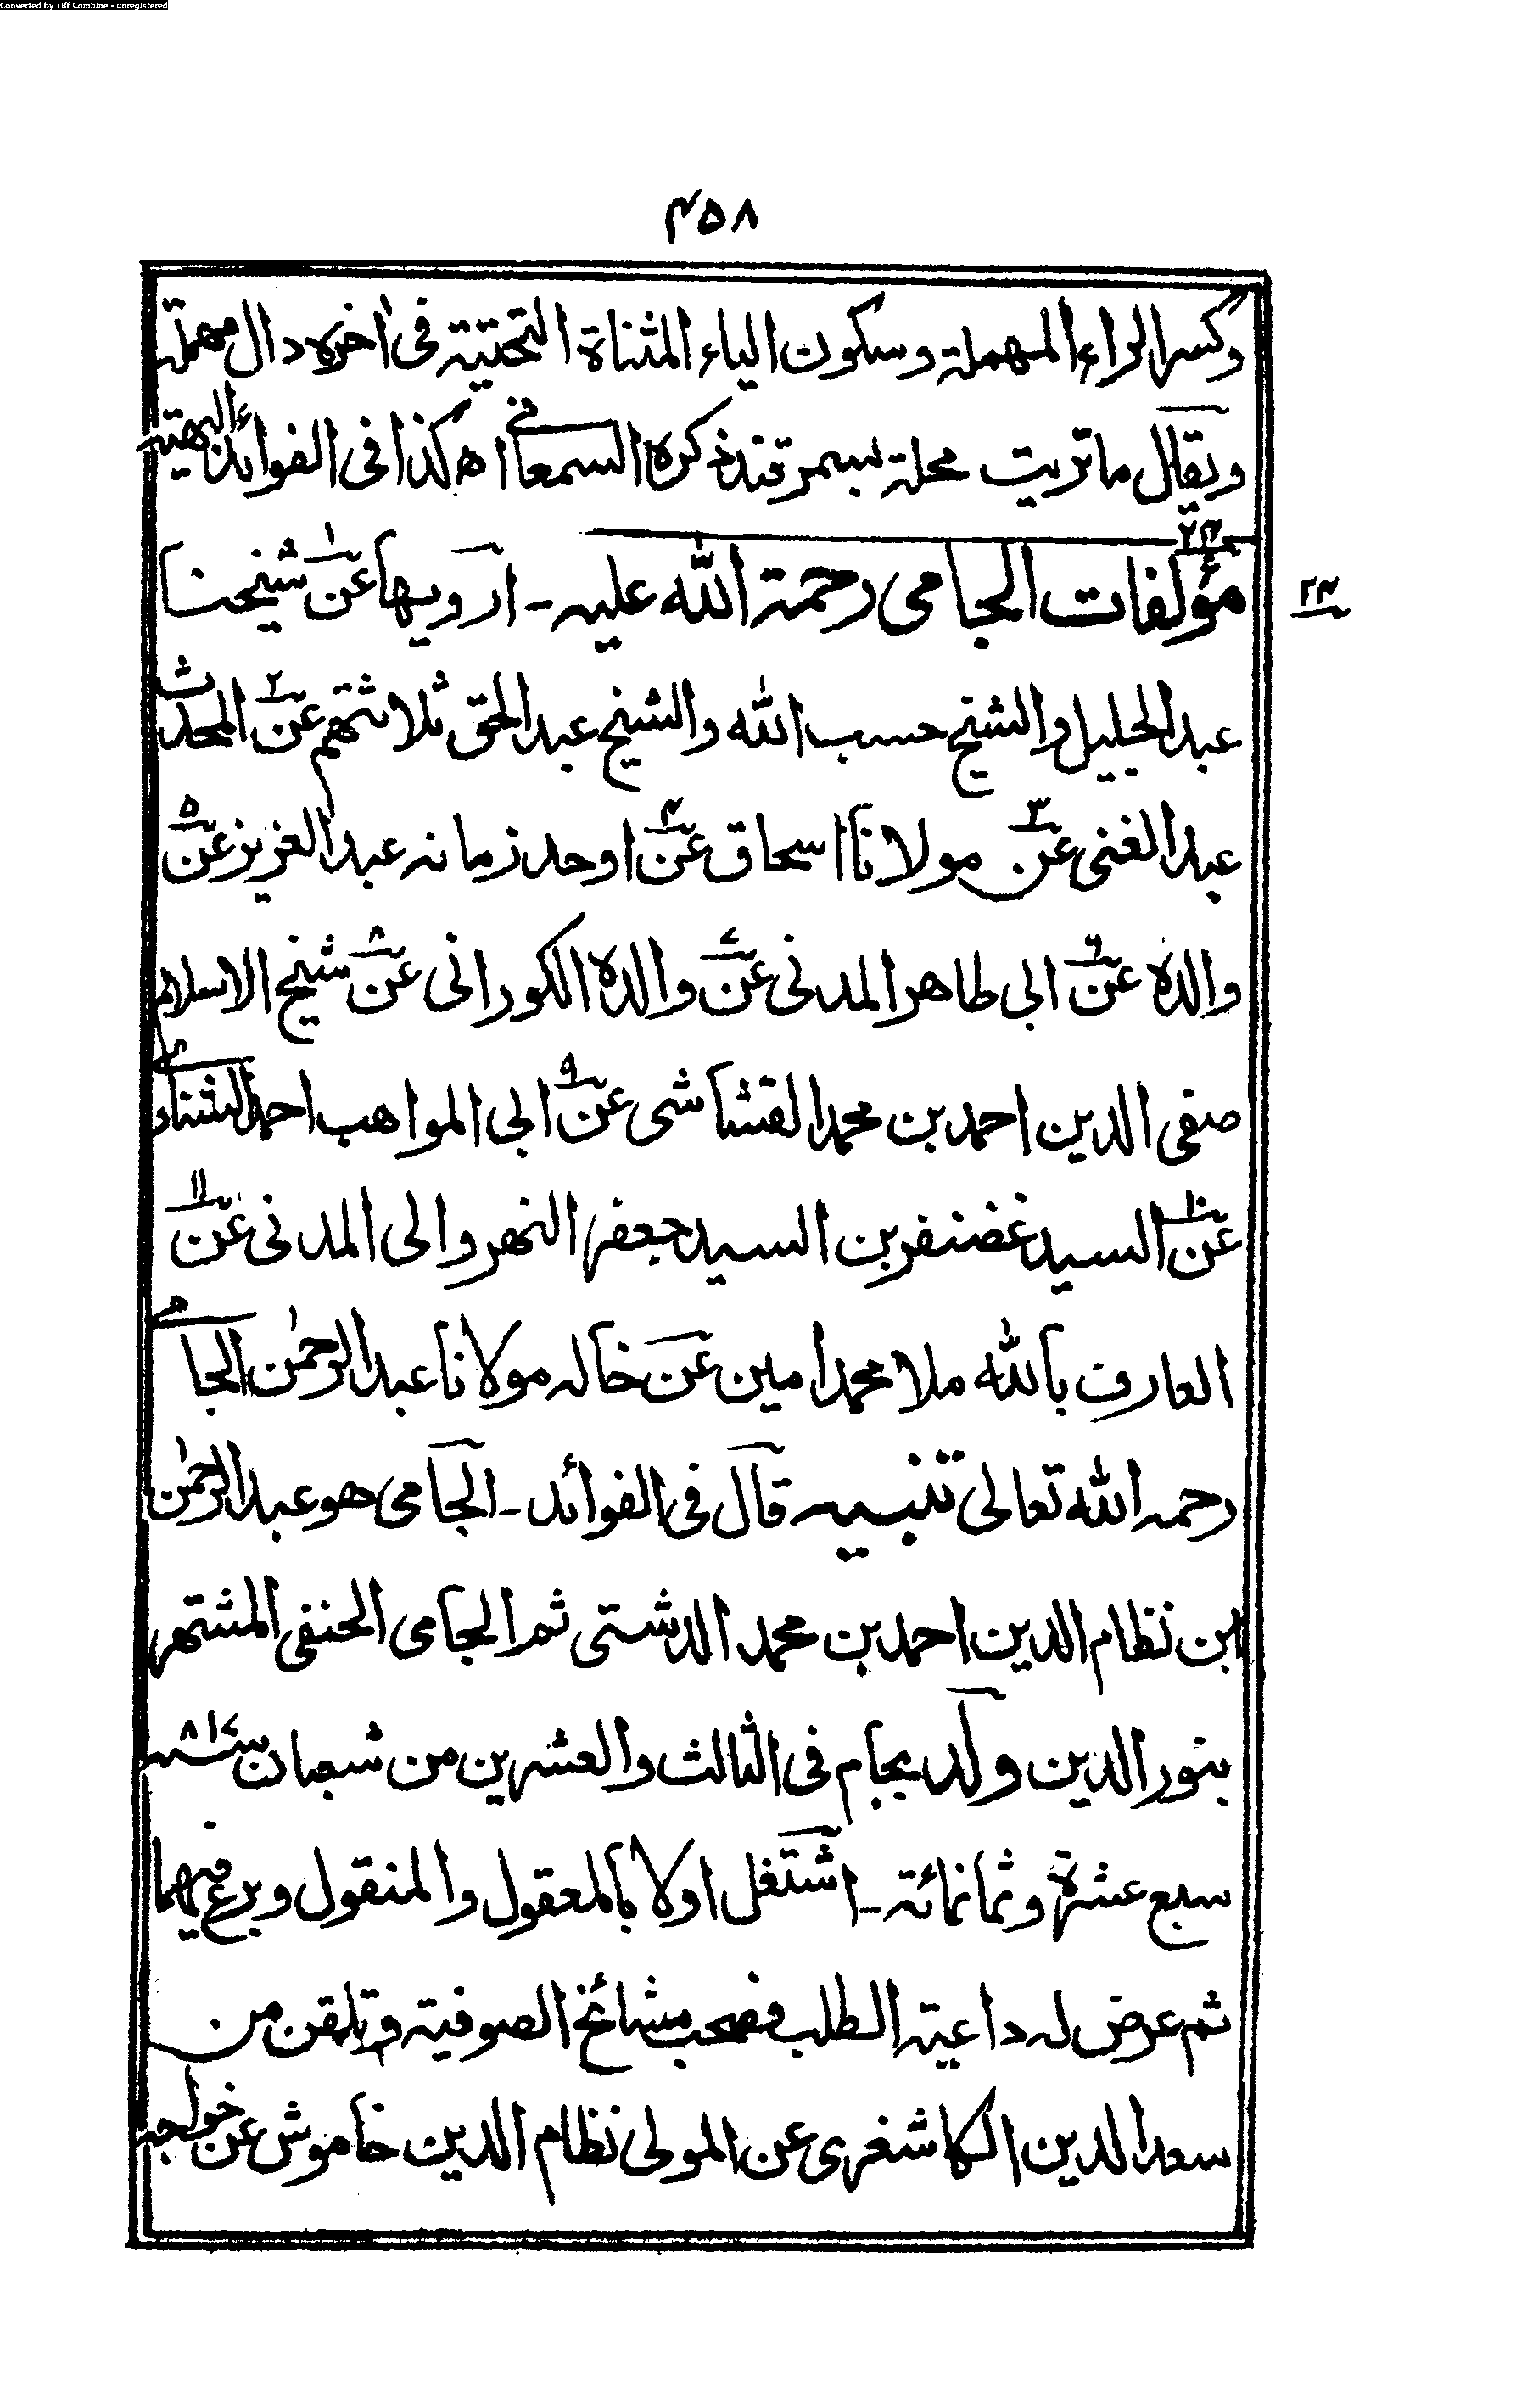 Converted by Tiff Combine - unregistered
۴۵۸
وكسر الراء المهملة وسكون الياء المثناة التحتية فى اخره دال مهملة
ويقال ماتريت محلة بسمرقند ذكره السمعانى اه كذا فى الفوائد البهية
۲۴
مؤلفات الجامى رحمة الله عليه ـ ارويها عن۱ شيخنا
۲۴
عبد الجليل والشيخ حسب الله والشيخ عبد الحق ثلاثتهم عن۲ المحدث
عبد الغنى عن۳ مولانا اسحاق عن۴ اوحد زمانه عبد العزيز عن۵
والده عن۶ ابى طاهر المدنى عن۷ والده الكورانى عن۸ شيخ الاسلام
صفى الدين احمد بن محمد القشاشى عن۹ ابى المواهب احمد الشناوى
عن۱۰ السيد غضنفر بن السيد جعفر النهروالى المدنى عن۱۱
العارف بالله ملا محمد امين عن خاله مولانا عبد الرحمن الجامى
رحمه الله تعالى تنبيه قال فى الفوائد ـ الجامى هو عبد الرحمن
ابن نظام الدين احمد بن محمد الدشتى ثم الجامى الحنفى المشتهر
بنور الدين ولد بجام فى الثالث والعشرين من شعبان سنة ۸۱۷
سبع عشرة وثمانمائة ـ اشتغل اولا بالمعقول والمنقول وبرع فيهما
ثم عرض له داعية الطلب فصحب مشائخ الصوفية وتلقن من
سعد الدين الكاشغرى عن المولى نظام الدين خاموش عن خواجه